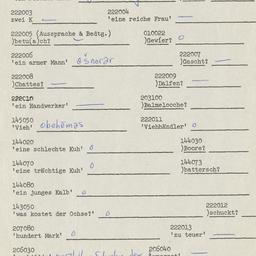 222003 222004
zwei K 'eine reiche Frau'
222005 (Aussprache & Bedtg.) 010022
)betu(a)ch? )Gewier? o
222006 222007
'ein armer Mann' )Gascht?
222008 222009
)Chattes? )Dalfen?
222010 203100
'ein Handwerker' )Balmelocche?
145050 222011
'Vieh' obehēmǝs 'Viehhändler' o
144020 144030
'eine schlechte Kuh' o )Boore?
144070 144073
'eine trächtige Kuh' o )battersch?
144080
'ein junges Kalb' o
143050 222012
'was kostet der Ochse?' o )schuckt?
207080 222013
'hundert Mark' o 'zu teuer'
206030 206040